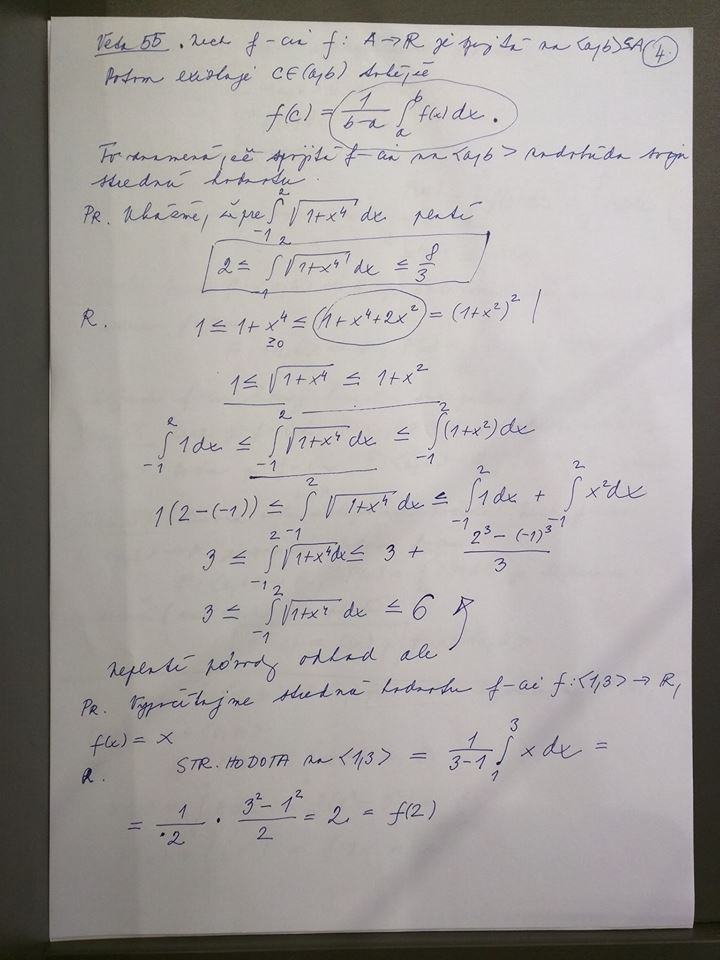 Veta 55. Nech f-cia f: A → R je spojitá na <a,b> ⊆ A (4.
Potom existuje c ∈ (a,b) také, že
f(c) = 1/(b-a) ∫_a^b f(x) dx.
To znamená, že spojitá f-cia na <a,b> nadobúda svoju
strednú hodnotu.
Pr. Ukážme, že pre ∫_{-1}^2 √(1+x^4) dx platí
2 ≤ ∫_{-1}^2 √(1+x^4) dx ≤ 8/3
R. 1 ≤ 1 + x^4 ≤ (1+x^4+2x^2) = (1+x^2)^2 |
≥0
1 ≤ √(1+x^4) ≤ 1+x^2
∫_{-1}^2 1dx ≤ ∫_{-1}^2 √(1+x^4) dx ≤ ∫_{-1}^2 (1+x^2)dx
1(2-(-1)) ≤ ∫_{-1}^2 √(1+x^4) dx ≤ ∫_{-1}^2 1dx + ∫_{-1}^2 x^2dx
3 ≤ ∫_{-1}^2 √(1+x^4)dx ≤ 3 + (2^3 - (-1)^3)/3
3 ≤ ∫_{-1}^2 √(1+x^4) dx ≤ 6
Neplatí pôvodný odhad ale
Pr. Vypočítajme strednú hodnotu f-cie f: <1,3> → R,
f(x) = x
R. STR. HODOTA na <1,3> = 1/(3-1) ∫_1^3 x dx =
= 1/2 · (3^2 - 1^2)/2 = 2 = f(2)